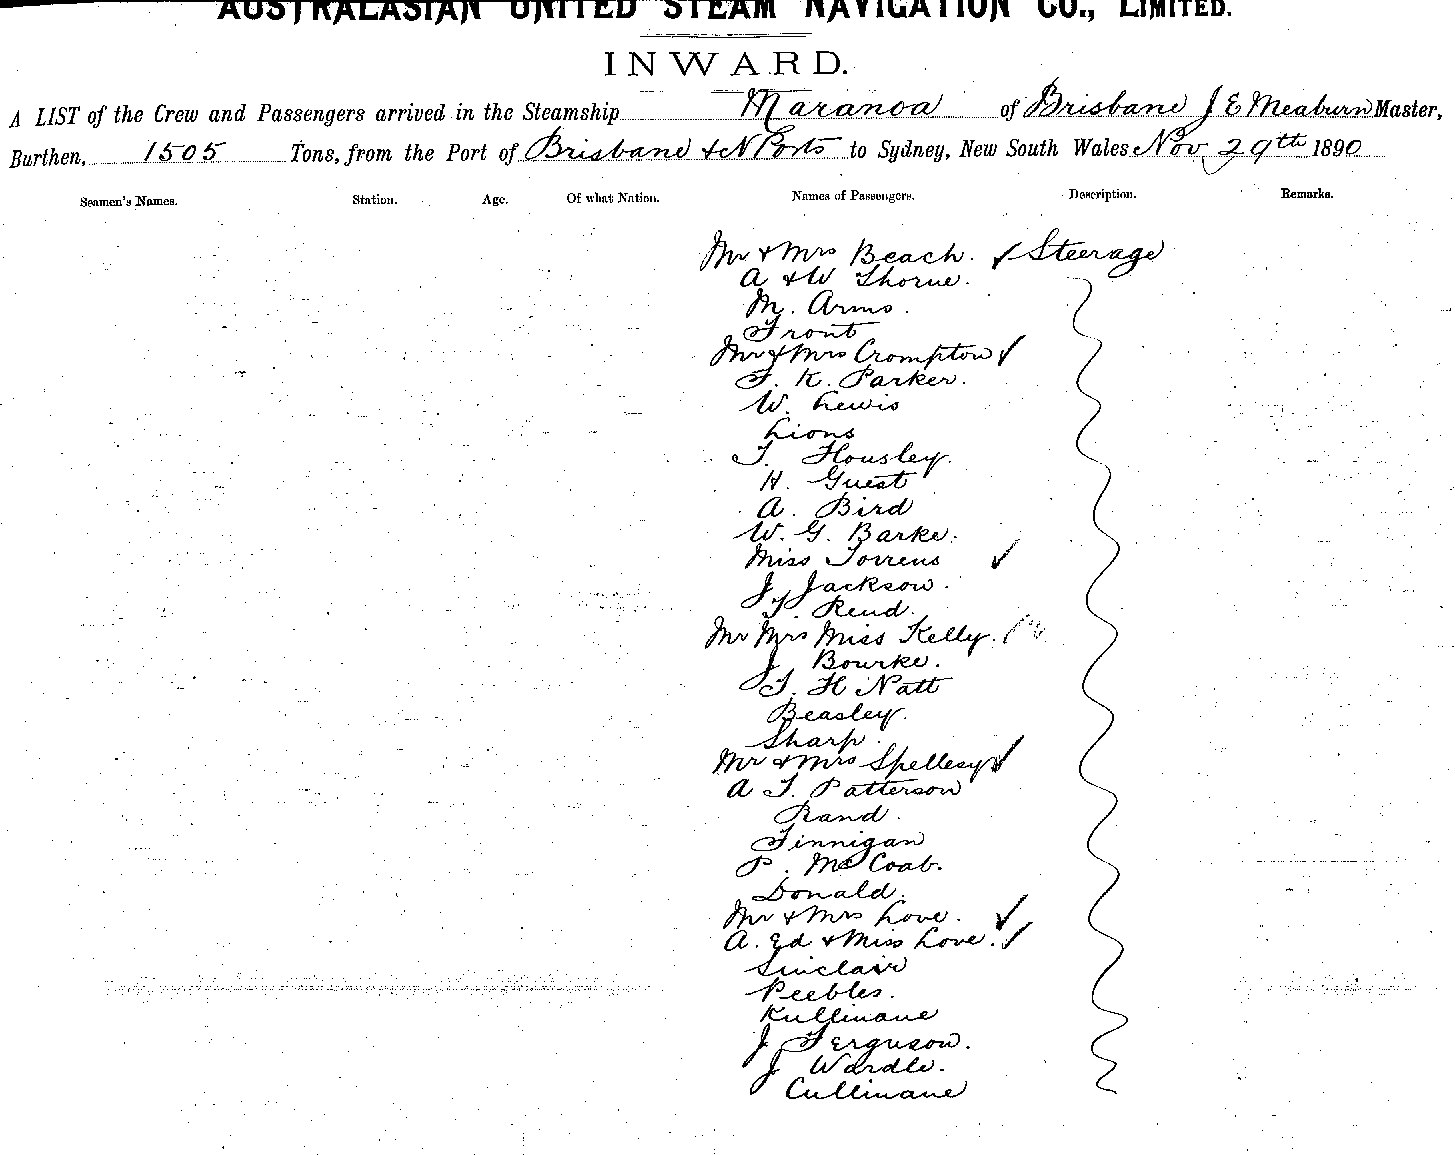 AUSTRALASIAN UNITED STEAM NAVIGATION CO., LIMITED.
INWARD.
A LIST of the Crew and Passengers arrived in the Steamship Maranoa of Brisbane J E Meaburn Master,
Burthen, 1505 Tons, from the Port of Brisbane & N Ports to Sydney, New South Wales Nov 29th 1890
Seamen's Names. Station. Age. Of what Nation. Names of Passengers. Description. Remarks.
Mr & Mrs Beach. ✓ Steerage
A & W Thorne.
M. Arms.
Front
Mr & Mrs Crompton ✓
F. K. Parker.
W. Lewis
Lions
T. Housley.
H. Guest
A. Bird
W. G. Barke.
Miss Torrens ✓
J. Jackson.
T. Rend.
Mr Mrs Miss Kelly.
J. Bourke.
T. H Natt
Beasley.
Sharp.
Mr & Mrs Spellesy ✓
A T. Patterson
Rand.
Finnigan
P. McCoab.
Donald.
Mr & Mrs Love. ✓
A. Ed & Miss Love. ✓
Sinclair
Peebles.
Kullinane
J. Ferguson.
J Wardle.
Cullinane